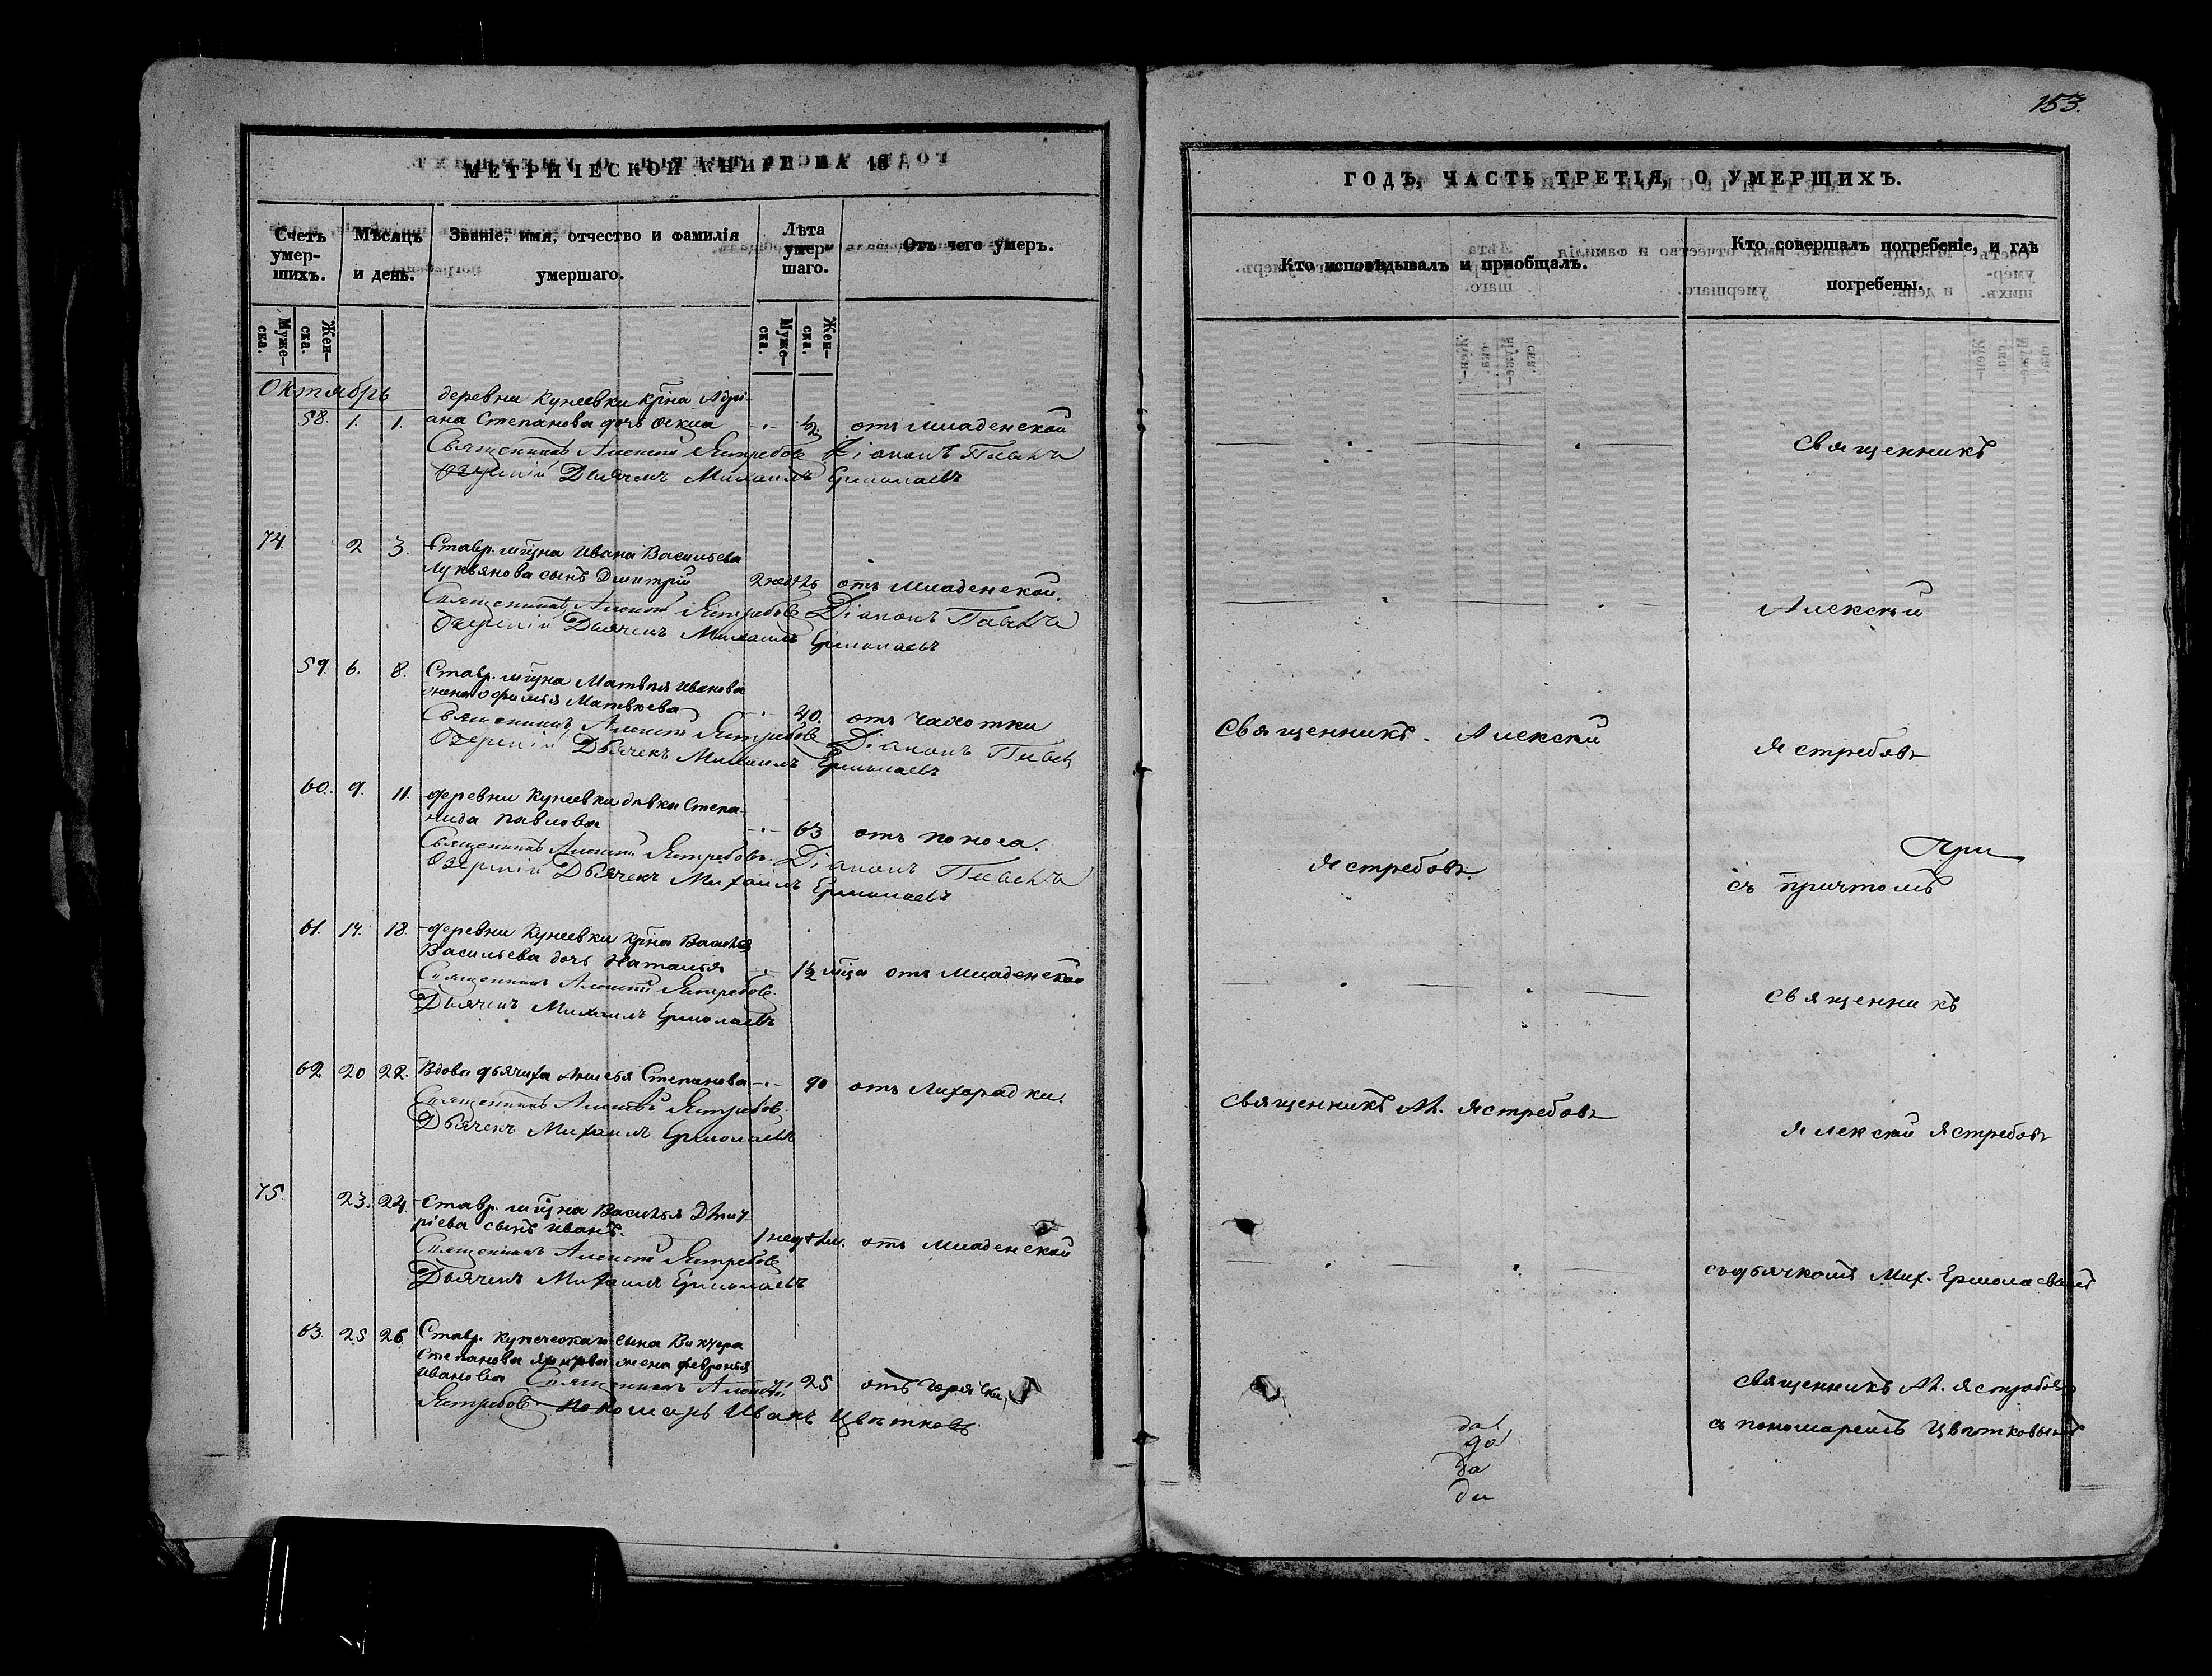 153.
МЕТРИЧЕСКОЙ КНИГИ НА 18
ГОДЪ, ЧАСТЬ ТРЕТІЯ, О УМЕРШИХЪ.
Счетъ умер-шихъ.
Мѣсяцъ и день.
Званіе, имя, отчество и фамилія умершаго.
Лѣта умер-шаго.
Отъ чего умеръ.
Кто исповѣдывалъ и пріобщалъ.
Кто совершалъ погребеніе, и гдѣ погребены.
Муже-ска.
Жен-ска.
Муже-ска.
Жен-ска.
Октябрь
деревни Кунеевки кр̃на Адрі-
58. 1. 1. ана Степанова дочь Ѳекла ½ отъ младенской
Священникъ Алексій Ястребовъ Діаконъ Павелъ
Озерскій Дьячекъ Михаилъ Ермолаевъ
священникъ
74. 2 3. Ставр. мѣщ̃на Ивана Васильева
Лукьянова сынъ Дмитрій 2 недѣль отъ младенской.
Священникъ Алексій Ястребовъ Діаконъ Павелъ
Озерскій Дьячекъ Михаилъ Ермолаевъ
Алексѣй
59. 6. 8. Ставр. мѣщ̃на Матвѣя Иванова
жена Матвѣева 40. отъ чахотки
Священникъ Алексій Ястребовъ Діаконъ
Озерскій Дьячекъ Михаилъ Ермолаевъ
священникъ. Алексѣй
Ястребовъ
60. 9. 11. деревни Кунеевки дѣвка Степа-
нида Павлова 63 отъ поноса.
Священникъ Алексій Ястребовъ. Діаконъ Павелъ
Озерскій Дьячекъ Михаилъ Ермолаевъ
Ястребовъ.
При
съ причтомъ
61. 17. 18. деревни Кунеевки кр̃на Василья
Васильева дочь Наталья 1½ мѣ̃ца отъ младенской
Священникъ Алексій Ястребовъ.
Дьячекъ Михаилъ Ермолаевъ
священникъ
62 20 22. Вдова дьячиха Степанова 90 отъ лихорадки.
Священникъ Алексѣй Ястребовъ.
Дьячекъ Михаилъ Ермолаевъ
священникъ Ал. Ястребовъ
Алексѣй Ястребовъ
75. 23. 24. Ставр. мѣщ̃на Василья Дмит-
ріева сынъ Иванъ. 1 недѣли. отъ младенской
Священникъ Алексій Ястребовъ
Дьячекъ Михаилъ Ермолаевъ
съ дьячкомъ Мих. Ермолаевымъ
63. 25 26 Ставр. купеческаго сына Виктора
Степанова жена Февронья
Иванова Священникъ Алексѣй 25 отъ горячки
Ястребовъ. Пономарь Иванъ Цвѣтковъ
священникъ Ал. Ястребовъ
съ пономаремъ Цвѣтковымъ
да
до
да
ди